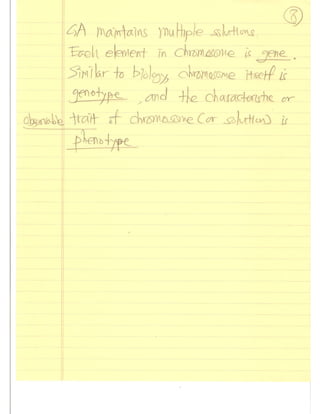 ③
GA maintains multiple solutions.
Each element in chromosome is gene.
Similar to biology, chromosome itself is
genotype, and the characteristic or
observable trait of chromosome (or solution) is
phenotype